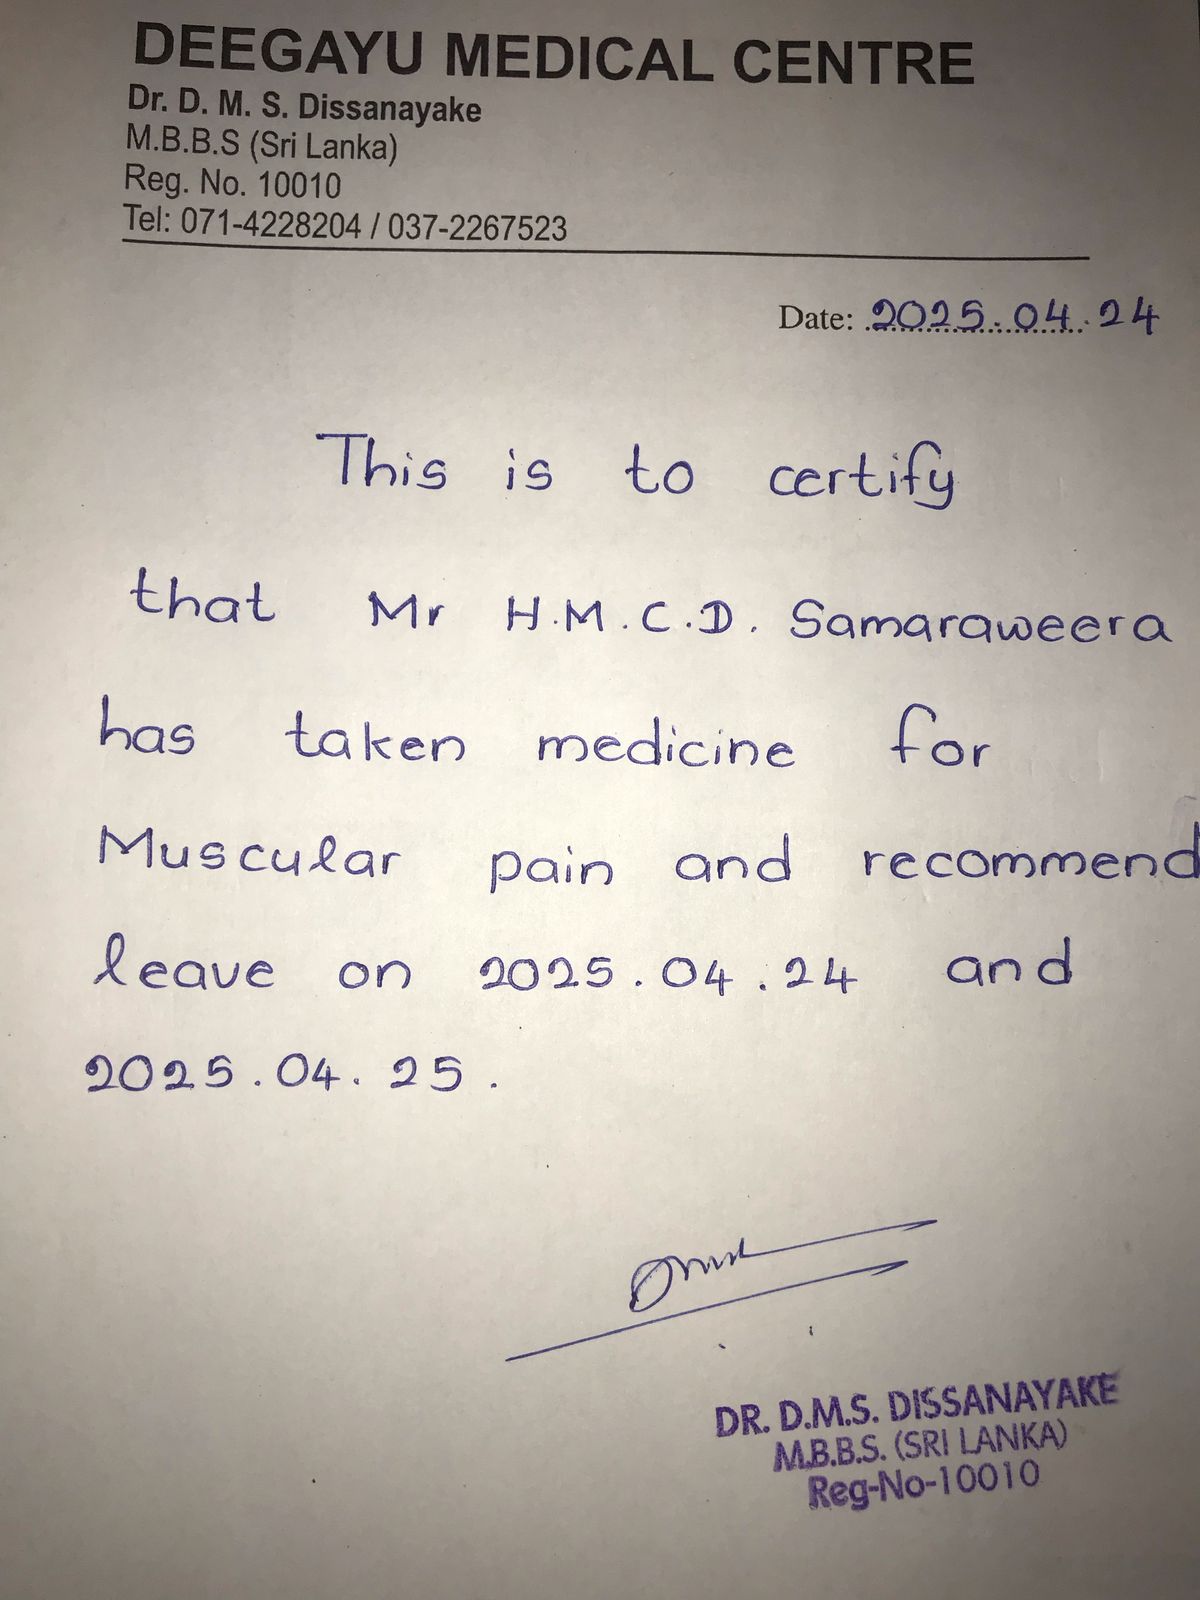 DEEGAYU MEDICAL CENTRE
Dr. D. M. S. Dissanayake
M.B.B.S (Sri Lanka)
Reg. No. 10010
Tel: 071-4228204 / 037-2267523
Date: 2025.04.24
This is to certify
that Mr H.M.C.D. Samaraweera
has taken medicine for
Muscular pain and recommend
leave on 2025.04.24 and
2025.04.25.
DR. D.M.S. DISSANAYAKE
M.B.B.S. (SRI LANKA)
Reg-No-10010